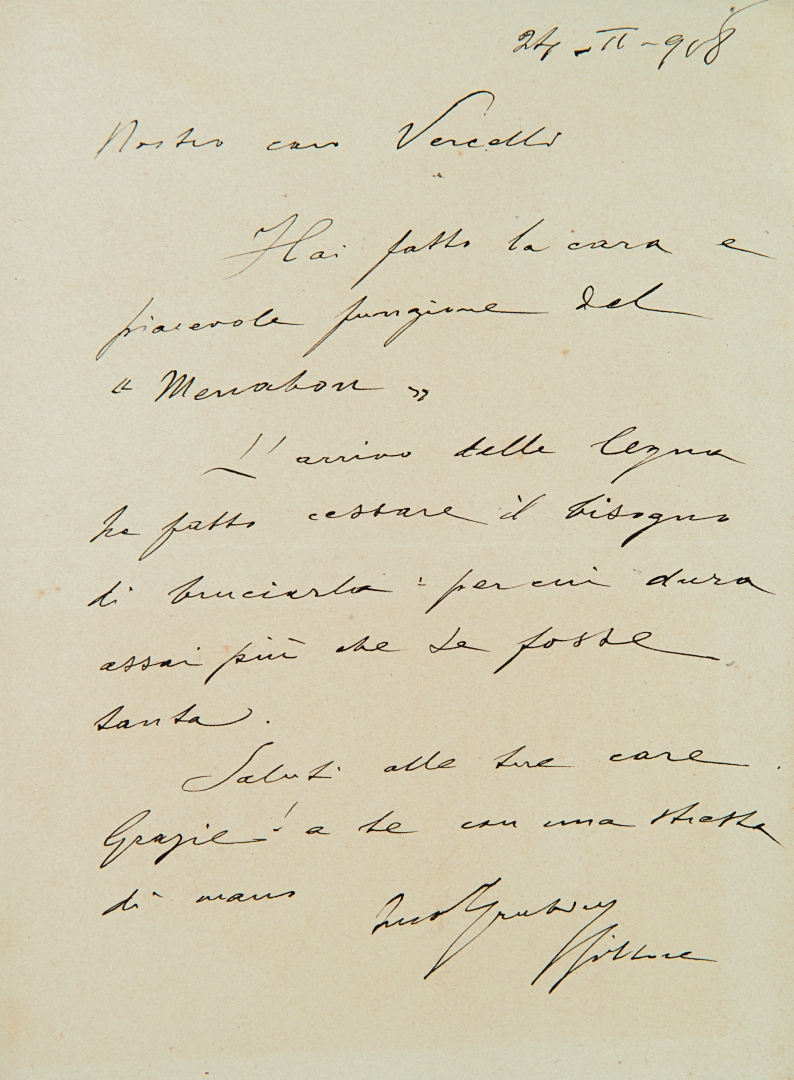 24-II-918
Nostro caro Vercelli
Hai fatto la cara e
piacevole funzione del
« Menabon »
L'arrivo delle legna
ha fatto cessare il bisogno
di bruciarla: per cui dura
assai più che se fosse
tanta.
Saluti alle tue care.
Grazie! a te con una stretta
di mano
Vittore